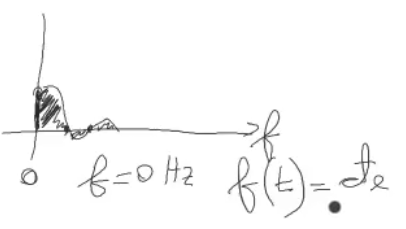 f
0 f=0 Hz f(t)=de